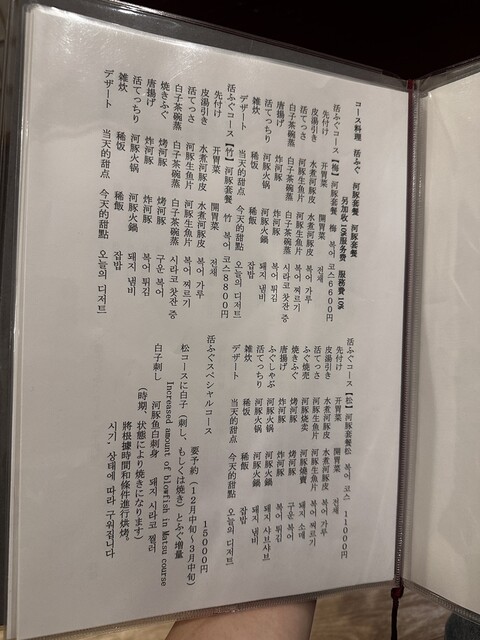 コース料理　活ふぐ　河豚套餐　河豚套餐
另加收 10%服务费　服務費 10%
活ふぐコース【梅】河豚套餐　梅　복어 코스 6600円
先付け　开胃菜　開胃菜　전채
皮湯引き　水煮河豚皮　水煮河豚皮　복어 가루
活てっさ　河豚生鱼片　河豚生魚片　복어 찌르기
白子茶碗蒸　白子茶碗蒸　白子茶碗蒸　시라코 찻잔 증
唐揚げ　炸河豚　炸河豚　복어 튀김
活てっちり　河豚火锅　河豚火鍋　돼지 냄비
雑炊　稀饭　稀飯　잡밥
デザート　当天的甜点　今天的甜點　오늘의 디저트
活ふぐコース【竹】河豚套餐　竹　복어 코스 8800円
先付け　开胃菜　開胃菜　전채
皮湯引き　水煮河豚皮　水煮河豚皮　복어 가루
活てっさ　河豚生鱼片　河豚生魚片　복어 찌르기
白子茶碗蒸　白子茶碗蒸　白子茶碗蒸　시라코 찻잔 증
焼きふぐ　烤河豚　烤河豚　구운 복어
唐揚げ　炸河豚　炸河豚　복어 튀김
活てっちり　河豚火锅　河豚火鍋　돼지 냄비
雑炊　稀饭　稀飯　잡밥
デザート　当天的甜点　今天的甜點　오늘의 디저트
活ふぐコース【松】河豚套餐松　복어 코스　11000円
先付け　开胃菜　開胃菜　전채
皮湯引き　水煮河豚皮　水煮河豚皮　복어 가루
活てっさ　河豚生鱼片　河豚生魚片　복어 찌르기
ふぐ焼売　河豚烧卖　河豚燒賣　돼지 소매
焼きふぐ　烤河豚　烤河豚　구운 복어
唐揚げ　炸河豚　炸河豚　복어 튀김
ふぐしゃぶ　河豚火锅　河豚火鍋　돼지 샤브샤브
活てっちり　河豚火锅　河豚火鍋　돼지 냄비
雑炊　稀饭　稀飯　잡밥
デザート　当天的甜点　今天的甜點　오늘의 디저트
活ふぐスペシャルコース　15000円
要予約（12月中旬～3月中旬）
松コースに白子（刺し、もしくは焼き）とふぐ増量
Increased amount of blowfish in Matsu course
白子刺し　河豚魚白刺身　돼지 시라코 찔러
（時期、状態により焼きになります）
將根據時間和條件進行烘烤。
시기・상태에 따라 구워집니다